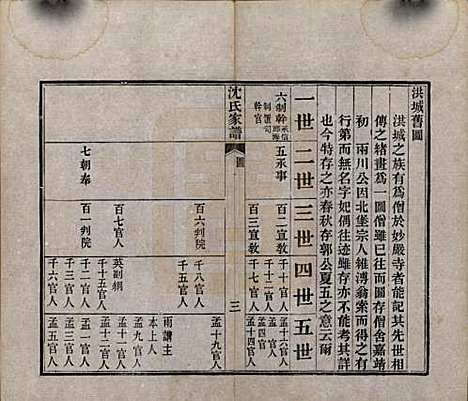 洪城舊圖
洪城之族有爲僧於妙嚴寺者能記其先世相
傳之緒畫爲一圖僧雖已往而圖存僧舍嘉靖
初雨川公因北堡宗人雒溥翁索而得之其
行第而無名字妃偶往迹雖存亦不能考其詳
也今特存之亦春秋存郭公夏五之意云爾
一世 二世 三世 四世 五世
六制幹
制置司
幹官
五承事
百二宣教 千十七官人 孟十六官人
百三宣教 千十二官人 孟四官人
千十官人 孟十四官人
沈氏家譜
三
百六判院 千八官人 孟十九官人
千五官人
雨講主
百七官人 英副綱 本上人
千十五官人 孟九官人
七朝奉 百一判院 千二官人 孟十一官人
千三官人 孟二官人
千六官人 孟五官人